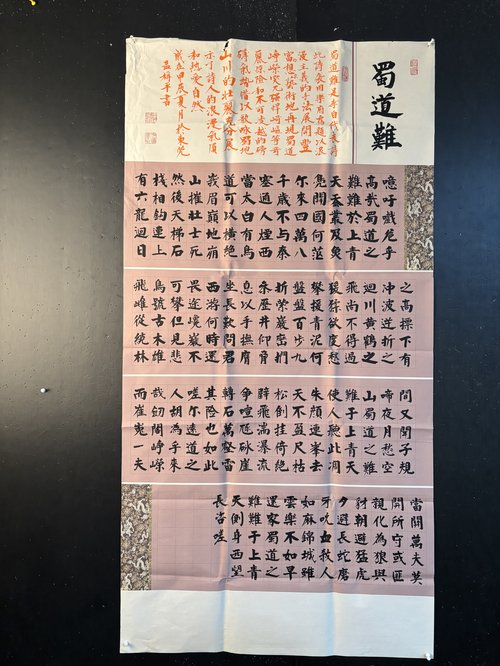 蜀道難
蜀道難是李白代表詩
此詩襲用樂府舊題以浪
漫主義的手法展開豐
富想象藝術地再現蜀道
崢嶸突兀強悍崎嶇等奇
麗驚險和不可凌越的磅
礴氣勢借以歌咏蜀地
山川的壯麗充分展
示了詩人的浪漫氣質
和熱愛自然
歲在甲辰夏月於東莞
孟祥平書
噫吁戲危乎
高哉蜀道之
難難於上青
天蚕叢及魚
鳧開國何茫
尔來四萬八
千歲不与秦
塞通人煙西
當太白有鳥
道可以橫絕
峨眉巔地崩
山摧壯士死
然後天梯石
棧相鉤連上
有六龍迴日
之高摽下有
冲波逆折之
迴川黃鶴之
飛尚不得過
猨猱欲度愁
攀援青泥何
盤盤百步九
折縈巖巒捫
參歷井仰脅
息以手撫膺
坐長歎問君
西游何時還
畏途巉巖不
可攀但見悲
鳥號古木雄
飛雌從繞林
間又聞子規
啼夜月愁空
山蜀道之難
難于上青天
使人聽此凋
朱顏連峯去
天不盈尺枯
松倒挂倚絕
壁飛湍瀑流
爭喧豗砯崖
轉石萬壑雷
其險也如此
嗟尔遠道之
人胡為乎來
哉劍閣崢嶸
而崔嵬一夫
當關萬夫莫
開所守或匪
親化為狼與
豺朝避猛虎
夕避長蛇磨
牙吮血殺人
如麻錦城雖
雲樂不如早
還家蜀道之
難難于上青
天側身西望
長咨嗟